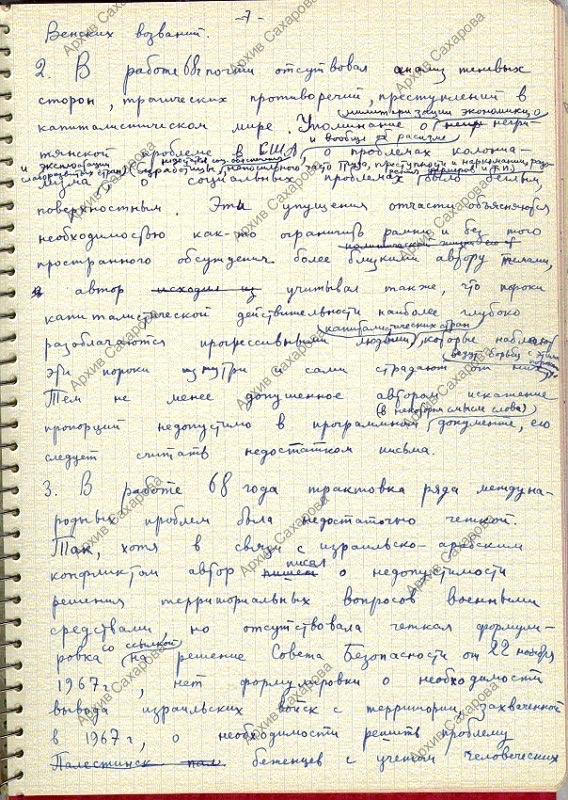 -7-
Венских воззваний.
2. В работе 68г почти отсутствовал анализ теневых
сторон, трагических противоречий, преступлений в
милитаризации экономики, о
капиталистическом мире. Упоминание о негри-
и вообще о расизме
тянской проблеме в США, о проблемах колониа-
и эксплоатации
лизма, о социальных проблемах было беглым,
поверхностным. Эти упущения отчасти объясняются
необходимостью как-то ограничить рамки и без того
пространного обсуждения более близкими автору темами,
автор исходил из учитывал также, что пороки
капиталистической действительности наиболее глубоко
капиталистических стран
разоблачаются прогрессивными людьми, которые наблюдают
ведут борьбу с этими
эти пороки изнутри и сами страдают от них,
Тем не менее допущенное автором искажение
(в некотором смысле слова)
пропорций недопустимо в программном документе, его
следует считать недостатком письма.
3. В работе 68 года трактовка ряда междуна-
родных проблем была недостаточно четкой.
Так, хотя в связи с израильско-арабским
писал
конфликтом автор пишет о недопустимости
решения территориальных вопросов военными
средствами но отсутствовала четкая формули-
со ссылкой
ровка на решение Совета Безопасности от 22 ноября
1967г, нет формулировки о необходимости
вывода израильских войск с территории, захваченной
в 1967г, о необходимости решить проблему
Палестинск беженцев с учетом человеческих
Архив Сахарова